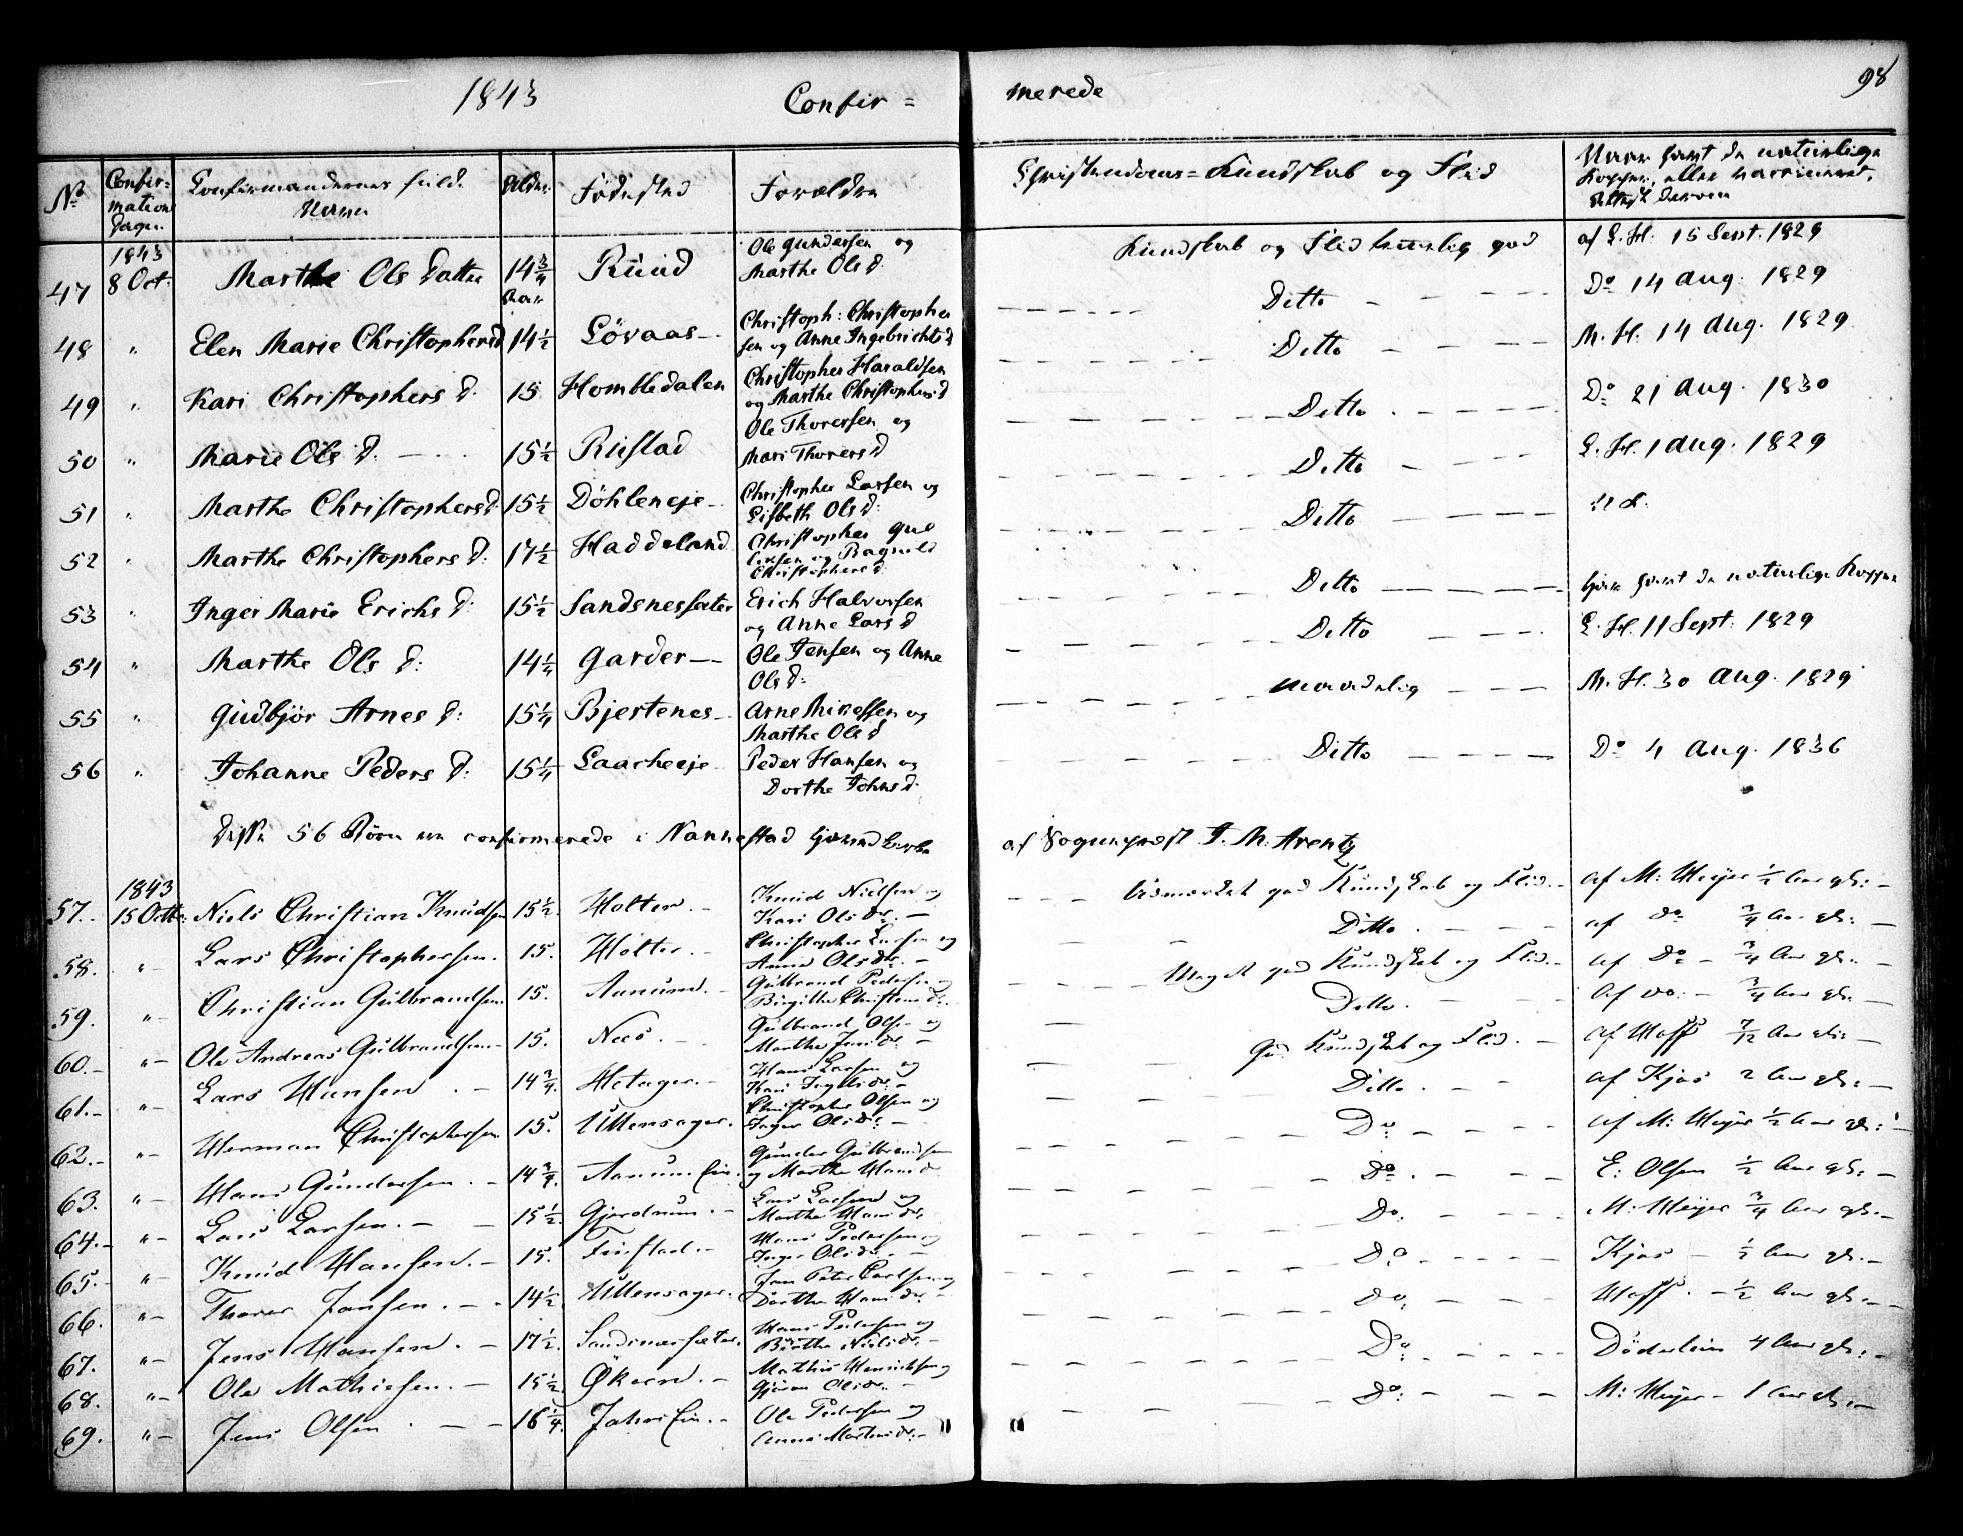 1843 Confir = merede 98
No Confir= mations Dagen Confirmandernes fulde Navn Alder Fødested Forældre Christendoms= Kundskab og Flid Naar havt de naturlige Kopper, eller vaccineret,
1843
47 8 Oct: Marthe Ols Datter 14 3/4 Aar Ruud Ole Gundersen og Marthe Ols D. Kundskab og Flid temelig god af L. H. 15 Sept. 1829
48 " Elen Marie Christophersd 14 1/2 Løvaas - Christoph: Christophersen og Anne Ingebrichts D Ditto Do 14 Aug. 1829
49 " Kari Christophers D. 15 Hombledalen Christopher Haraldsen og Marthe Christophers D Ditto M. H. 14 Aug. 1829
50 " Marie Ols D. 15 1/2 Rustad Ole Thoresen og Mari Thorers D Ditto Do 21 Aug. 1830
51 " Marthe Christophers D 15 1/2 Døhleneje - Christopher Larsen og Lisbeth Ols D: Ditto L. H. 1 Aug. 1829
52 " Marthe Christophers D: 17 1/2 Haddeland Christopher Gulbrandsen og Ragnild Christophers D. Ditto
53 " Inger Marie Erichs D: 15 1/2 Sandsnessæter Erich Halvorsen og Anne Lars D Ditto havt de naturlige Kopper
54 " Marthe Ols D: 14 1/4 Garder - Ole Jensen og Anne Ols D: Ditto L. H. 11 Sept: 1829
55 " Gudbjør Arnes D: 15 1/4 Bjertenes - Arne og Marthe Ols D maadelig M. H. 30 Aug. 1829
56 " Johanne Peders D: 15 1/4 Laacheeje Peder Hansen og Dorthe Johns D. Ditto Do 4 Aug. 1836
Disse 56 Børn ere confirmerede i Nannestad Hovedkirke af Sogneprest J. M. Arentz
1843
57. 15 Octb: Niels Christian Knudsen 15 1/2 Holter. - Knud Nielsen og Kari Olsdr. - Udmærket god Kundskab og Flid. - af M: Meyer 1/2 Aar gl: -
58. " - Lars Christophersen. 15. Holter. - Christopher Larsen og Anne Olsdr. - Ditto. af Do 3/4 Aar gl: -
59. " - Christian Gulbrandsen 15. Aanum. - Gulbrand Pedersen og Birgitte Christensd: Meget god Kundskab og Flid. - af Do - 3/4 Aar gl: -
60. - " - Ole Andreas Gulbrandsen - 15. Næs. - Gulbrand Olsen og Marthe Jensdr: - Ditto. af Do: - 3/4 Aar gl: -
61. - " - Lars Hansen. - 14 3/4. Hotager. - Hans Larsen og Kari - God Kundskab og Flid. - af Hoff 7/12 Aar gl: -
62. - " - Herman Christophersen 15. Ullensager. Christopher Olsen og Inger Olsdr: - Ditto. af Kjos 2 Aar gl: -
63. " - Hans Gundersen. - 14 3/4. Aanum Gunder Gulbrandsen og Marthe Hansdr Do: af M: Meyer 1/2 Aar gl: -
64. - " - Lars Larsen. - 15 1/2. Gjerdrum. - Lars Larsen og Marthe Hansdr: Do. E: Olsen 1/2 Aar gl: -
65. - " - Knud Hansen. - 15. - Hans Pedersen og Inger Olsdr: - Do: M: Meyer 3/4 Aar gl: -
66. " - Thorer Jansen. - 14 1/2. Ullensager. Jan Peter Carlsen og Dorthe Hansdr. Do Kjos - 1/2 Aar gl: -
67. " - Jens Hansen. - 17 1/2. Sandsnessæter. Hans Pedersen og Birthe Nielsdr. - Do. Hoff. - 1/2 Aar gl: -
68. " - Ole Mathiesen. - 15 1/2. Økern. - Mathis Henrichsen og Gjøran Olsdr. - Do: Døderlein 4 Aar gl: -
69. " - Jens Olsen. - 16 1/4. - Ole Pedersen og Anne Mortensdr: - Do: M: Meyer - 1 Aar gl: -